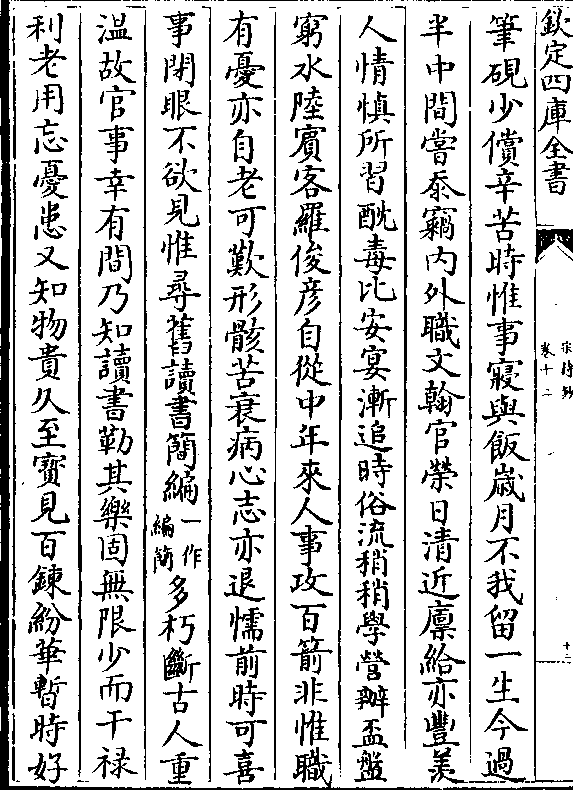 欽定四庫全書
宋詩鈔
卷十二
十二
筆硯少償辛苦時惟事寢與飯歲月不我留一生今過
半中間嘗忝竊内外職文翰官榮日清近廪給亦豐羡
人情慎所習酖毒比安宴漸追時俗流稍稍學營辦盃盤
窮水陸賓客羅俊彦自從中年來人事攻百箭非惟職
有憂亦自老可歎形骸苦衰病心志亦退懦前時可喜
事閉眼不欲見惟尋舊讀書簡編一作編簡多朽斷古人重
温故官事幸有間乃知讀書勤其樂固無限少而干禄
利老用忘憂患又知物貴久至寳見百鍊紛華暫時好